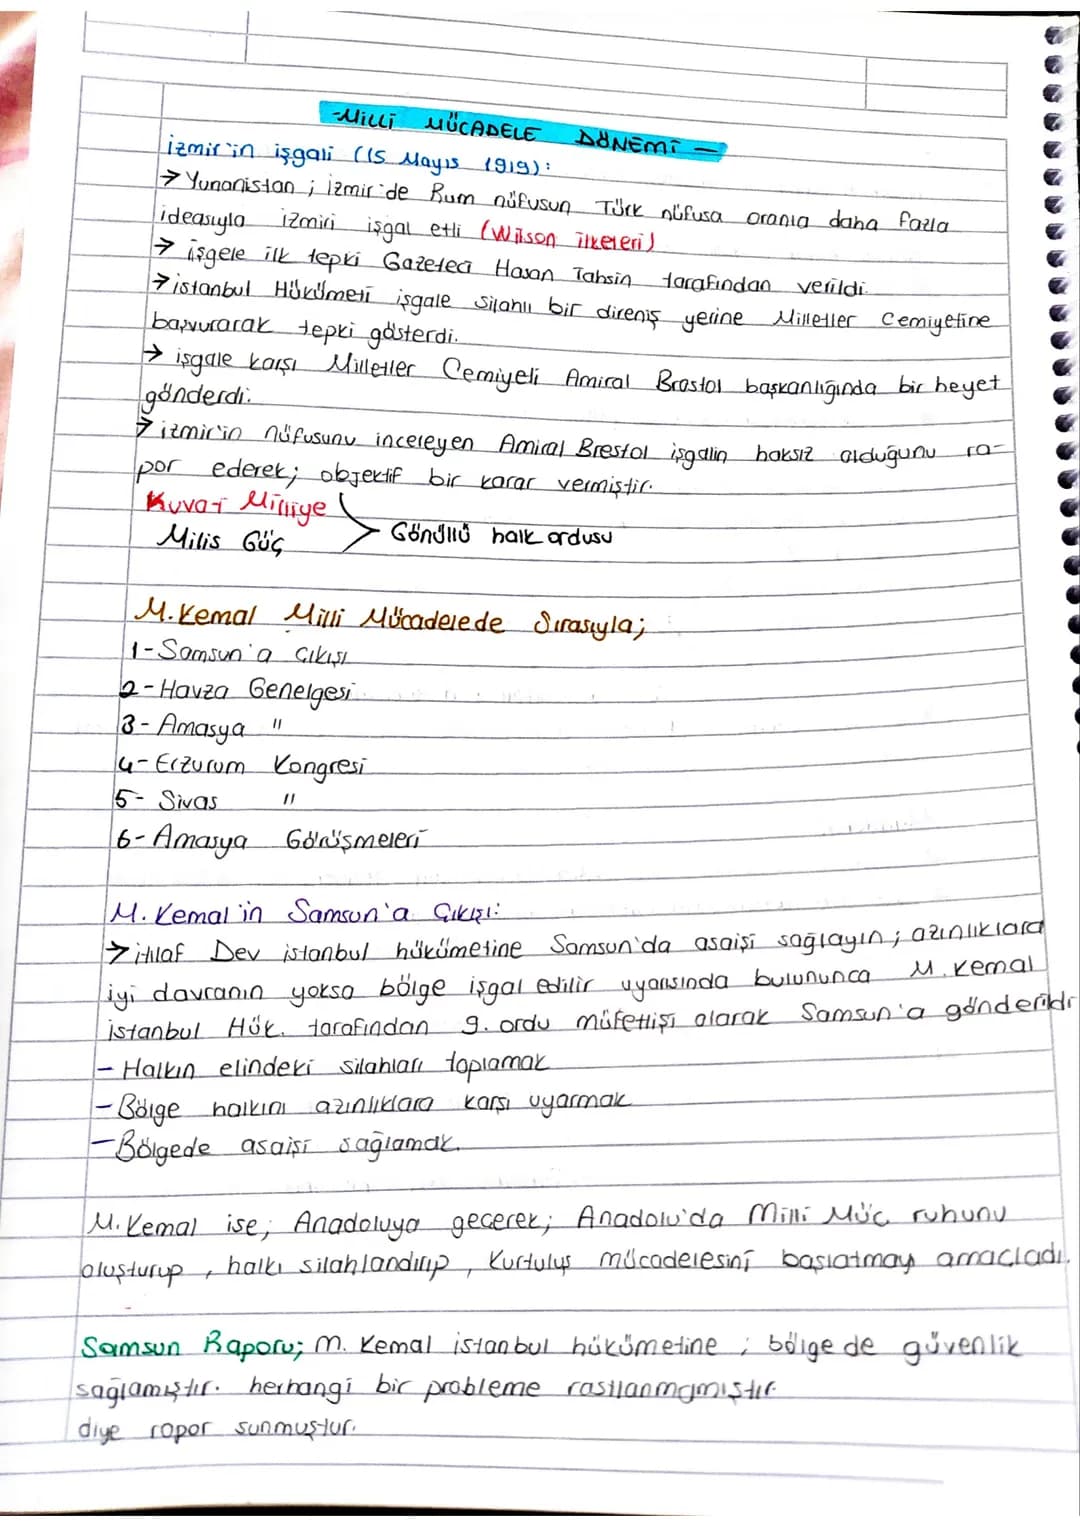 -Milli MÜCADELE DÖNEMİ -
İzmir'in işgali (15 Mayıs 1919):
→ Yunanistan ; izmir'de Rum nüfusun Türk nüfusa oranla daha fazla
ideasıyla izmiri işgal etti (Wilson ilkeleri)
→ işgele ilk tepki Gazeteci Hasan Tahsin tarafından verildi.
→ istanbul Hükümeti işgale silahlı bir direniş yerine Milletler Cemiyetine
başvurarak tepki gösterdi.
→ işgale karşı Milletler Cemiyeti Amiral Brostol başkanlığında bir heyet
gönderdi.
→ izmir'in nüfusunu inceleyen Amiral Brestol işgalin haksız olduğunu ra-
por ederek; objektif bir karar vermiştir.
Kuva-i Milliye
Milis Güç > Gönüllü halk ordusu
M.Kemal Milli Mücadelede Sırasıyla;
1-Samsun'a Çıkışı
2-Havza Genelgesi
3- Amasya "
4- Erzurum Kongresi
5- Sivas "
6- Amasya Görüşmeleri
M. Kemal'in Samsun'a Çıkışı:
→ itilaf Dev istanbul hükümetine Samsun'da asaişi sağlayın; azınlıklara
iyi davranın yoksa bölge işgal edilir uyarısında bulununca M. Kemal
istanbul Hük. tarafından 9. ordu müfettişi olarak Samsun'a gönderildi
- Halkın elindeki silahları toplamak
- Bölge halkını azınlıklara karşı uyarmak
- Bölgede asaişi sağlamak.
M. Kemal ise; Anadoluya geçerek; Anadolu'da Milli Müc ruhunu
oluşturup , halkı silahlandırıp , Kurtuluş mücadelesini başlatmay amaçladı.
Samsun Raporu; M. Kemal istanbul hükümetine ; bölgede güvenlik
sağlamıştır. herhangi bir probleme rastlanmamıştır.
diye rapor sunmuştur.